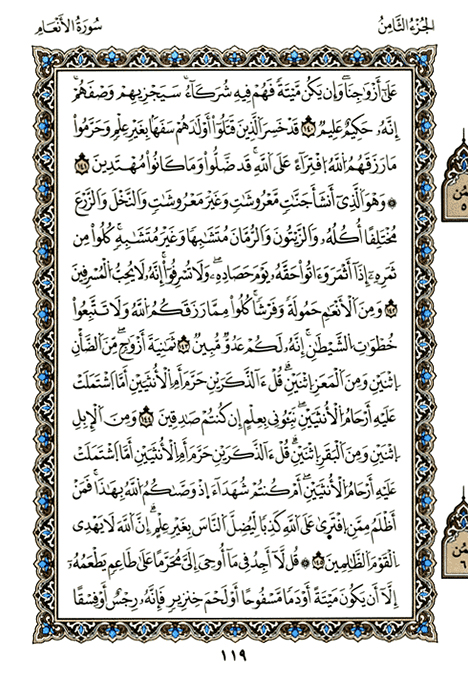 سُورَةُ الْأَنْعَام
الجُزْءُ الثَّامِنُ
عَلَىٰ أَزْوَٰجِنَا وَإِن يَكُن مَّيْتَةً فَهُمْ فِيهِ شُرَكَآءُ سَيَجْزِيهِمْ وَصْفَهُمْ
إِنَّهُۥ حَكِيمٌ عَلِيمٌ ١٤٠ قَدْ خَسِرَ ٱلَّذِينَ قَتَلُوٓا۟ أَوْلَٰدَهُمْ سَفَهًۢا بِغَيْرِ عِلْمٍ وَحَرَّمُوا۟
مَا رَزَقَهُمُ ٱللَّهُ ٱفْتِرَآءً عَلَى ٱللَّهِ قَدْ ضَلُّوا۟ وَمَا كَانُوا۟ مُهْتَدِينَ ١٤١
۞ وَهُوَ ٱلَّذِىٓ أَنشَأَ جَنَّٰتٍ مَّعْرُوشَٰتٍ وَغَيْرَ مَعْرُوشَٰتٍ وَٱلنَّخْلَ وَٱلزَّرْعَ
مُخْتَلِفًا أُكْلُهُۥ وَٱلزَّيْتُونَ وَٱلرُّمَّانَ مُتَشَٰبِهًا وَغَيْرَ مُتَشَٰبِهٍ كُلُوا۟ مِن
ثَمَرِهِۦٓ إِذَآ أَثْمَرَ وَءَاتُوا۟ حَقَّهُۥ يَوْمَ حِصَادِهِۦ وَلَا تُسْرِفُوٓا۟ إِنَّهُۥ لَا يُحِبُّ ٱلْمُسْرِفِينَ
١٤٢ وَمِنَ ٱلْأَنْعَٰمِ حَمُولَةً وَفَرْشًا كُلُوا۟ مِمَّا رَزَقَكُمُ ٱللَّهُ وَلَا تَتَّبِعُوا۟
خُطْوَٰتِ ٱلشَّيْطَٰنِ إِنَّهُۥ لَكُمْ عَدُوٌّ مُّبِينٌ ١٤٣ ثَمَٰنِيَةَ أَزْوَٰجٍ مِّنَ ٱلضَّأْنِ
ٱثْنَيْنِ وَمِنَ ٱلْمَعْزِ ٱثْنَيْنِ قُلْ ءَآلذَّكَرَيْنِ حَرَّمَ أَمِ ٱلْأُنثَيَيْنِ أَمَّا ٱشْتَمَلَتْ
عَلَيْهِ أَرْحَامُ ٱلْأُنثَيَيْنِ نَبِّـُٔونِى بِعِلْمٍ إِن كُنتُمْ صَٰدِقِينَ ١٤٤ وَمِنَ ٱلْإِبِلِ
ٱثْنَيْنِ وَمِنَ ٱلْبَقَرِ ٱثْنَيْنِ قُلْ ءَآلذَّكَرَيْنِ حَرَّمَ أَمِ ٱلْأُنثَيَيْنِ أَمَّا ٱشْتَمَلَتْ
عَلَيْهِ أَرْحَامُ ٱلْأُنثَيَيْنِ أَمْ كُنتُمْ شُهَدَآءَ إِذْ وَصَّىٰكُمُ ٱللَّهُ بِهَٰذَا فَمَنْ
أَظْلَمُ مِمَّنِ ٱفْتَرَىٰ عَلَى ٱللَّهِ كَذِبًا لِّيُضِلَّ ٱلنَّاسَ بِغَيْرِ عِلْمٍ إِنَّ ٱللَّهَ لَا يَهْدِى
ٱلْقَوْمَ ٱلظَّٰلِمِينَ ١٤٥ ۞ قُل لَّآ أَجِدُ فِى مَآ أُوحِىَ إِلَىَّ مُحَرَّمًا عَلَىٰ طَاعِمٍ يَطْعَمُهُۥٓ
إِلَّآ أَن يَكُونَ مَيْتَةً أَوْ دَمًا مَّسْفُوحًا أَوْ لَحْمَ خِنزِيرٍ فَإِنَّهُۥ رِجْسٌ أَوْ فِسْقًا
١١٩